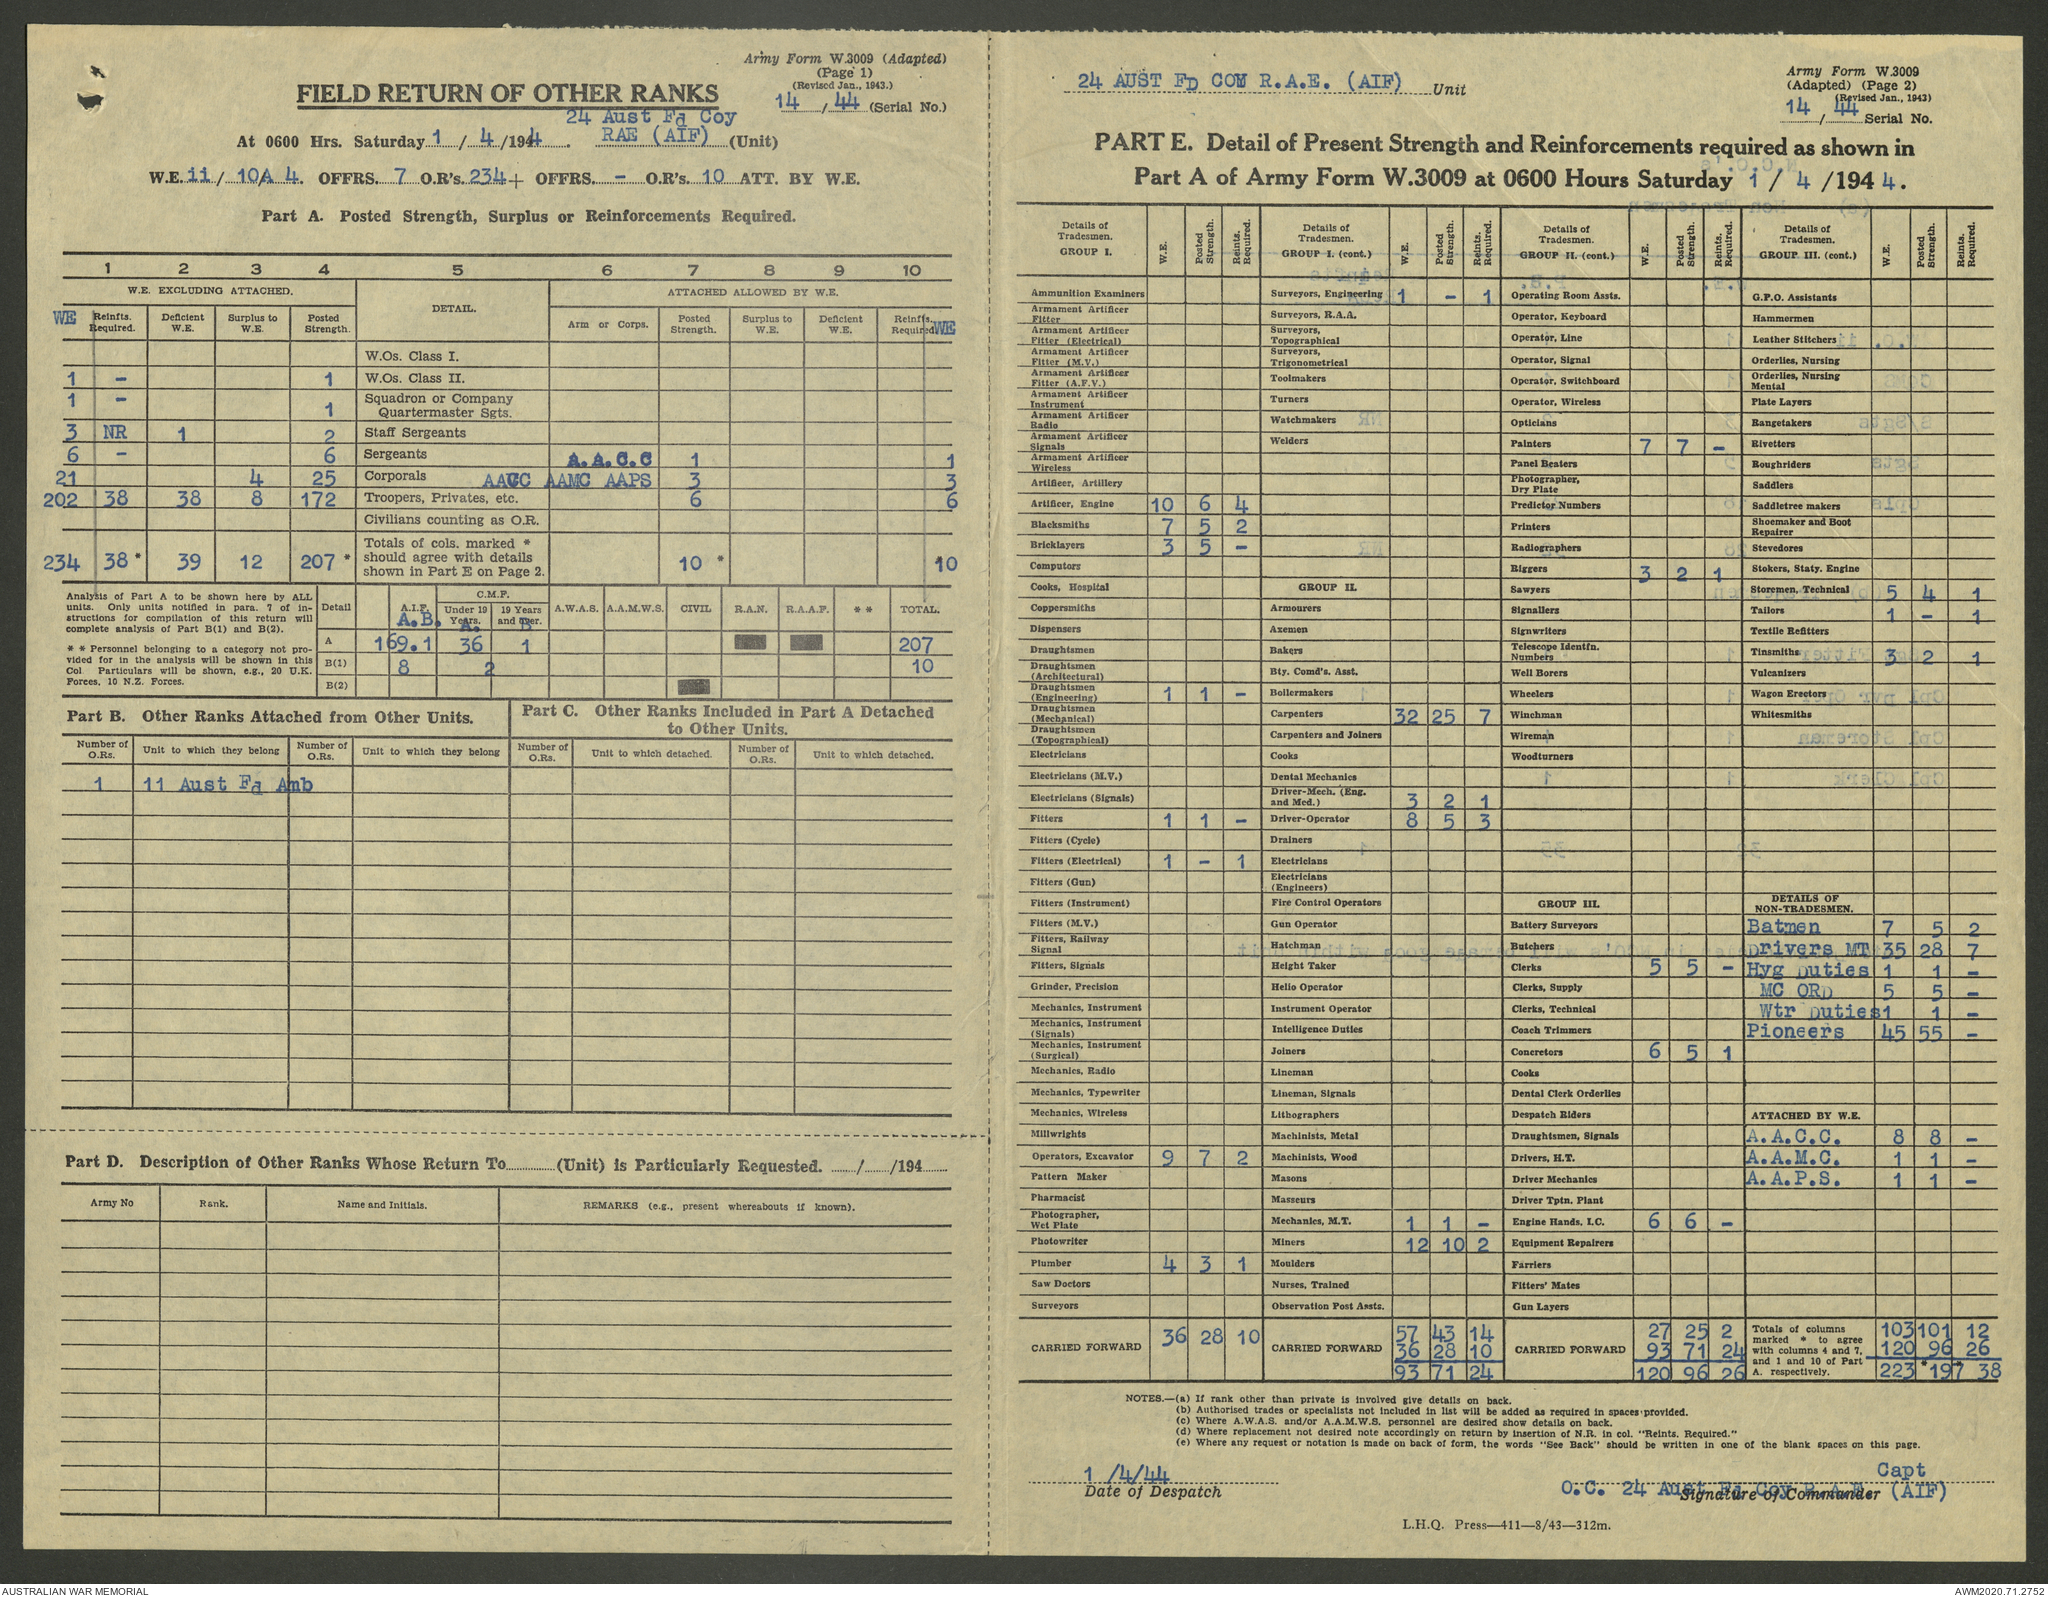 Army Form W.3009 (Adapted)
(Page 1)
(Revised Jan., 1943.)
14 / 44 (Serial No.)
FIELD RETURN OF OTHER RANKS
24 Aust Fd Coy
At 0600 Hrs. Saturday 1 / 4 /1944 . RAE (AIF) (Unit)
W.E. ii / 10A 4. OFFRS. 7 O.R's. 234 + OFFRS. – O.R's. 10 ATT. BY W.E.
Part A. Posted Strength, Surplus or Reinforcements Required.
1 2 3 4 5 6 7 8 9 10
W.E. EXCLUDING ATTACHED. DETAIL. ATTACHED ALLOWED BY W.E.
WE Reinfts. Required. Deficient W.E. Surplus to W.E. Posted Strength. Arm or Corps. Posted Strength. Surplus to W.E. Deficient W.E. Reinfts. Required WE
W.Os. Class I.
1 – 1 W.Os. Class II.
1 – 1 Squadron or Company Quartermaster Sgts.
3 NR 1 2 Staff Sergeants
6 – 6 Sergeants A.A.C.C 1 1
21 4 25 Corporals AACC AAMC AAPS 3 3
202 38 38 8 172 Troopers, Privates, etc. 6 6
Civilians counting as O.R.
234 38 * 39 12 207 * Totals of cols. marked * should agree with details shown in Part E on Page 2. 10 * *10
Analysis of Part A to be shown here by ALL units. Only units notified in para. 7 of instructions for compilation of this return will complete analysis of Part B(1) and B(2).
* * Personnel belonging to a category not provided for in the analysis will be shown in this Col Particulars will be shown, e.g., 20 U.K. Forces, 10 N.Z. Forces.
Detail A.I.F. C.M.F. Under 19 Years. 19 Years and over. A.W.A.S. A.A.M.W.S. CIVIL R.A.N. R.A.A.F. * * TOTAL.
A.B. A. B
A 169.1 36 1 207
B(1) 8 2 10
B(2)
Part B. Other Ranks Attached from Other Units.
Part C. Other Ranks Included in Part A Detached to Other Units.
Number of O.Rs. Unit to which they belong Number of O.Rs. Unit to which they belong Number of O.Rs. Unit to which detached. Number of O.Rs. Unit to which detached.
1 11 Aust Fd Amb
Part D. Description of Other Ranks Whose Return To (Unit) is Particularly Requested. / /194
Army No Rank. Name and Initials. REMARKS (e.g., present whereabouts if known).
24 AUST FD COM R.A.E. (AIF) Unit
Army Form W.3009
(Adapted) (Page 2)
(Revised Jan., 1943)
14 / 44 Serial No.
PART E. Detail of Present Strength and Reinforcements required as shown in
Part A of Army Form W.3009 at 0600 Hours Saturday 1 / 4 /194 4.
Details of Tradesmen. GROUP I. W.E. Posted Strength. Reints. Required.
Ammunition Examiners
Armament Artificer Fitter
Armament Artificer Fitter (Electrical)
Armament Artificer Fitter (M.V.)
Armament Artificer Fitter (A.F.V.)
Armament Artificer Instrument
Armament Artificer Radio
Armament Artificer Signals
Armament Artificer Wireless
Artificer, Artillery
Artificer, Engine 10 6 4
Blacksmiths 7 5 2
Bricklayers 3 5 –
Computors
Cooks, Hospital
Coppersmiths
Dispensers
Draughtsmen
Draughtsmen (Architectural)
Draughtsmen (Engineering) 1 1 –
Draughtsmen (Mechanical)
Draughtsmen (Topographical)
Electricians
Electricians (M.V.)
Electricians (Signals)
Fitters 1 1 –
Fitters (Cycle)
Fitters (Electrical) 1 – 1
Fitters (Gun)
Fitters (Instrument)
Fitters (M.V.)
Fitters, Railway Signal
Fitters, Signals
Grinder, Precision
Mechanics, Instrument
Mechanics, Instrument (Signals)
Mechanics, Instrument (Surgical)
Mechanics, Radio
Mechanics, Typewriter
Mechanics, Wireless
Millwrights
Operators, Excavator 9 7 2
Pattern Maker
Pharmacist
Photographer, Wet Plate
Photowriter
Plumber 4 3 1
Saw Doctors
Surveyors
CARRIED FORWARD 36 28 10
Details of Tradesmen. GROUP I. (cont.) W.E. Posted Strength. Reints. Required.
Surveyors, Engineering 1 – 1
Surveyors, R.A.A.
Surveyors, Topographical
Surveyors, Trigonometrical
Toolmakers
Turners
Watchmakers
Welders
GROUP II.
Armourers
Axemen
Bakers
Bty. Comd's. Asst.
Boilermakers
Carpenters 32 25 7
Carpenters and Joiners
Cooks
Dental Mechanics
Driver-Mech. (Eng. and Med.) 3 2 1
Driver-Operator 8 5 3
Drainers
Electricians
Electricians (Engineers)
Fire Control Operators
Gun Operator
Hatchman
Height Taker
Helio Operator
Instrument Operator
Intelligence Duties
Joiners
Lineman
Lineman, Signals
Lithographers
Machinists, Metal
Machinists, Wood
Masons
Masseurs
Mechanics, M.T. 1 1 –
Miners 12 10 2
Moulders
Nurses, Trained
Observation Post Assts.
CARRIED FORWARD 57 43 14
36 28 10
93 71 24
Details of Tradesmen. GROUP II. (cont.) W.E. Posted Strength. Reints. Required.
Operating Room Assts.
Operator, Keyboard
Operator, Line
Operator, Signal
Operator, Switchboard
Operator, Wireless
Opticians
Painters 7 7 –
Panel Beaters
Photographer, Dry Plate
Predictor Numbers
Printers
Radiographers
Riggers 3 2 1
Sawyers
Signallers
Signwriters
Telescope Identfn. Numbers
Well Borers
Wheelers
Winchman
Wireman
Woodturners
GROUP III.
Battery Surveyors
Butchers
Clerks 5 5 –
Clerks, Supply
Clerks, Technical
Coach Trimmers
Concretors 6 5 1
Cooks
Dental Clerk Orderlies
Despatch Riders
Draughtsmen, Signals
Drivers, H.T.
Driver Mechanics
Driver Tptn. Plant
Engine Hands, I.C. 6 6 –
Equipment Repairers
Farriers
Fitters' Mates
Gun Layers
CARRIED FORWARD 27 25 2
93 71 24
120 96 26
Details of Tradesmen. GROUP III. (cont.) W.E. Posted Strength. Reints. Required.
G.P.O. Assistants
Hammermen
Leather Stitchers
Orderlies, Nursing
Orderlies, Nursing Mental
Plate Layers
Rangetakers
Rivetters
Roughriders
Saddlers
Saddletree makers
Shoemaker and Boot Repairer
Stevedores
Stokers, Staty. Engine
Storemen, Technical 5 4 1
Tailors 1 – 1
Textile Refitters
Tinsmiths 3 2 1
Vulcanizers
Wagon Erectors
Whitesmiths
DETAILS OF NON-TRADESMEN.
Batmen 7 5 2
Drivers MT 35 28 7
Hyg Duties 1 1 –
MC ORD 5 5 –
Wtr Duties 1 1 –
Pioneers 45 55 –
ATTACHED BY W.E.
A.A.C.C. 8 8 –
A.A.M.C. 1 1 –
A.A.P.S. 1 1 –
Totals of columns marked * to agree with columns 4 and 7, and 1 and 10 of Part A. respectively.
103 101 12
120 96 26
223 *197 * 38
NOTES.—(a) If rank other than private is involved give details on back.
(b) Authorised trades or specialists not included in list will be added as required in spaces provided.
(c) Where A.W.A.S. and/or A.A.M.W.S. personnel are desired show details on back.
(d) Where replacement not desired note accordingly on return by insertion of N.R. in col. "Reints. Required."
(e) Where any request or notation is made on back of form, the words "See Back" should be written in one of the blank spaces on this page.
1 /4/44
Date of Despatch
Capt
O.C. 24 Aust Fd Coy R.A.E. (AIF)
Signature of Commander
L.H.Q. Press—411—8/43—312m.
AUSTRALIAN WAR MEMORIAL
AWM2020.71.2752